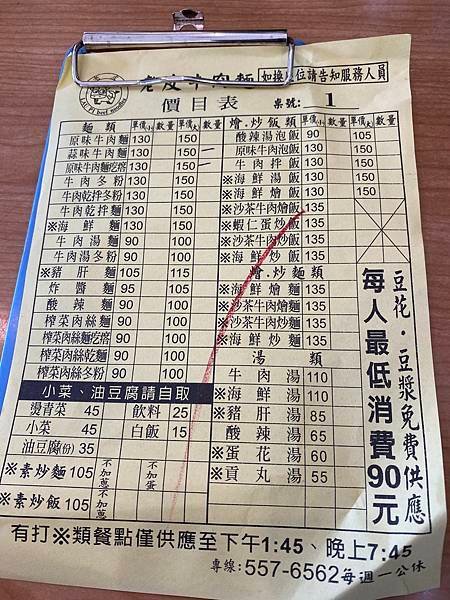 老皮牛肉麵 如換桌位請告知服務人員
價目表 桌號: 1
麵類 單價(小) 數量 單價(大) 數量
原味牛肉麵 130 150
蒜味牛肉麵 130 150
原味牛肉麵疙瘩 130 150
牛肉冬粉 130 150
牛肉乾拌冬粉 130 150
牛肉乾拌麵 130 150
※海鮮麵 130 150
牛肉湯麵 90 100
牛肉湯冬粉 90 100
※豬肝麵 105 115
炸醬麵 95 105
酸辣麵 90 100
榨菜肉絲麵 90 100
榨菜肉絲麵疙瘩 90 100
榨菜肉絲乾麵 90 100
榨菜肉絲冬粉 90 100
小菜、油豆腐請自取
燙青菜 45 飲料 25
小菜 45 白飯 15
油豆腐(份) 35
※素炒麵 105 不加蔥 不加蛋
※素炒飯 105 不加蔥
燴.炒飯類 單價(小) 數量 單價(大) 數量
酸辣湯泡飯 90 105
原味牛肉泡飯 130 150
牛肉拌飯 130 150
※海鮮湯飯 130 150
※海鮮燴飯 130 150
※沙茶牛肉燴飯 135
※蝦仁蛋炒飯 135
※沙茶牛肉炒飯 135
※海鮮炒飯 135
燴.炒麵類
※海鮮燴麵 135
※沙茶牛肉燴麵 135
※沙茶牛肉炒麵 135
※海鮮炒麵 135
湯類
牛肉湯 110
※海鮮湯 110
※豬肝湯 85
酸辣湯 65
※蛋花湯 60
※貢丸湯 55
豆花.豆漿免費供應
每人最低消費90元
有打※類餐點僅供應至下午1:45、晚上7:45
專線: 557-6562 每週一公休